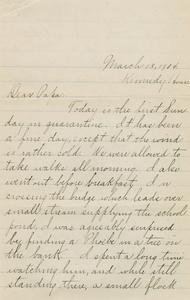 March 13, 1904.
Kennedy House
Dear Papa:
Today is the first Sun-
day in quarantine. It has been
a fine day, except that the wind
rather cold. We were allowed to
take walks all morning. I also
went out before breakfast. In
crossing the bridge which leads over
small stream supplying the school
pond, I was agreeably surprised
by finding a Phoebe in a tree on
the bank. I spent a long time
watching him, and while still
standing there, a small flock